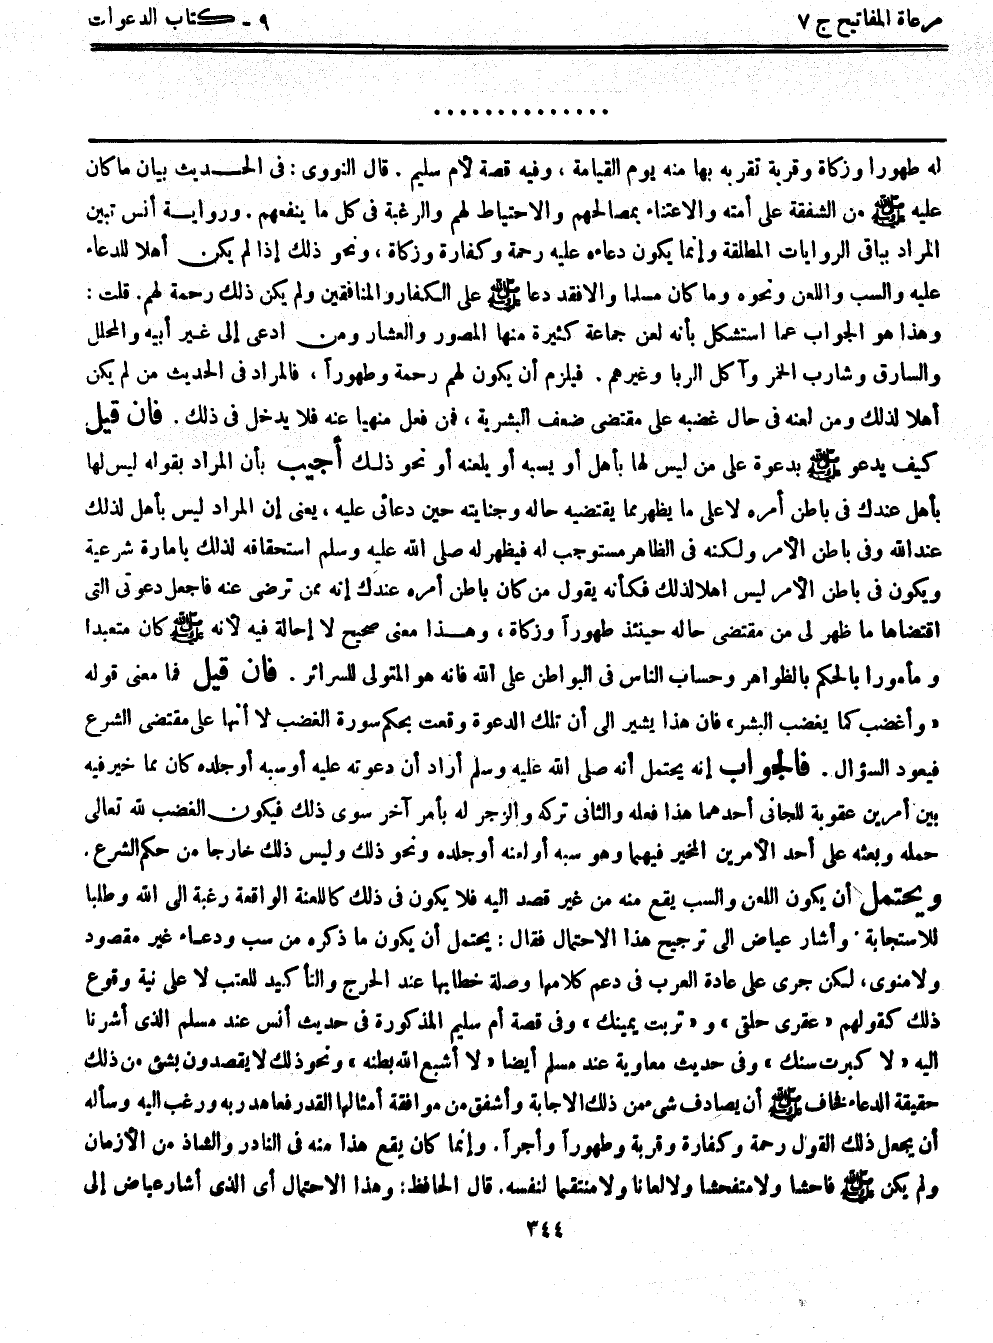 مرعاة المفاتيح ج ٧
٩ - كتاب الدعوات
..............
له طهورا وزكاة وقربة تقربه بها منه يوم القيامة ، وفيه قصة لأم سليم . قال النووى : فى الحديث بيان ما كان
عليه ﷺ من الشفقة على أمته والاعتناء بمصالحهم والاحتياط لهم والرغبة فى كل ما ينفعهم . ورواية أنس تبين
المراد بباقى الروايات المطلقة وإنما يكون دعاءه عليه رحمة وكفارة وزكاة ، ونحو ذلك إذا لم يكن أهلا للدعاء
عليه والسب واللعن ونحوه وما كان مسلما والافقد دعا ﷺ على الكفار والمنافقين ولم يكن ذلك رحمة لهم . قلت :
وهذا هو الجواب عما استشكل بأنه لعن جماعة كثيرة منها المصور والعشار ومن ادعى إلى غير أبيه والمحلل
والسارق وشارب الخمر وآكل الربا وغيرهم . فيلزم أن يكون لهم رحمة وطهوراً ، فالمراد فى الحديث من لم يكن
أهلا لذلك ومن لعنه فى حال غضبه على مقتضى ضعف البشرية ، فمن فعل منهيا عنه فلا يدخل فى ذلك . فان قيل
كيف يدعو ﷺ بدعوة على من ليس لها بأهل أو يسبه أو يلعنه أو نحو ذلك أجيب بأن المراد بقوله ليس لها
بأهل عندك فى باطن أمره لا على ما يظهر مما يقتضيه حاله وجنايته حين دعائى عليه ، يعنى إن المراد ليس بأهل لذلك
عند الله وفى باطن الأمر ولكنه فى الظاهر مستوجب له فيظهر له صلى الله عليه وسلم استحقاقه لذلك بامارة شرعية
ويكون فى باطن الأمر ليس اهلا لذلك فكأنه يقول من كان باطن أمره عندك إنه ممن ترضى عنه فاجعل دعوتى التى
اقتضاها ما ظهر لى من مقتضى حاله حينئذ طهوراً وزكاة ، وهذا معنى صحيح لا إحالة فيه لأنه ﷺ كان متعبدا
و مأمورا بالحكم بالظواهر وحساب الناس فى البواطن على الله فانه هو المتولى للسرائر . فان قيل فما معنى قوله
« وأغضب كما يغضب البشر » فان هذا يشير الى أن تلك الدعوة وقعت بحكم سورة الغضب لا أنها على مقتضى الشرع
فيعود السؤال . فالجواب إنه يحتمل أنه صلى الله عليه وسلم أراد أن دعوته عليه أوسبه أوجلده كان مما خير فيه
بين أمرين عقوبة للجانى أحدهما هذا فعله والثانى تركه والزجر له بأمر آخر سوى ذلك فيكون الغضب لله تعالى
حمله وبعثه على أحد الأمرين المخير فيهما وهو سبه أو لعنه أوجلده ونحو ذلك وليس ذلك خارجا من حكم الشرع .
ويحتمل أن يكون اللعن والسب يقع منه من غير قصد اليه فلا يكون فى ذلك كاللعنة الواقعة رغبة الى الله وطلبا
للاستجابة . وأشار عياض الى ترجيح هذا الاحتمال فقال : يحتمل أن يكون ما ذكره من سب ودعاء غير مقصود
ولا منوى ، لكن جرى على عادة العرب فى دعم كلامها وصلة خطابها عند الحرج والتأكيد للعتب لا على نية وقوع
ذلك كقولهم « عقرى حلقى » و « تربت يمينك » وفى قصة أم سليم المذكورة فى حديث أنس عند مسلم الذى أشرنا
اليه « لا كبرت سنك » وفى حديث معاوية عند مسلم أيضا « لا أشبع الله بطنه » ونحو ذلك لا يقصدون بشئ من ذلك
حقيقة الدعاء فخاف ﷺ أن يصادف شىء من ذلك الاجابة وأشفق من موافقة أمثالها القدر فعاهد ربه ورغب اليه وسأله
أن يجعل ذلك القول رحمة وكفارة وقربة وطهوراً وأجراً . وإنما كان يقع هذا منه فى النادر والشاذ من الأزمان
ولم يكن ﷺ فاحشا ولا متفحشا ولا لعانا ولا منتقما لنفسه . قال الحافظ : وهذا الاحتمال أى الذى أشار عياض إلى
٣٤٤